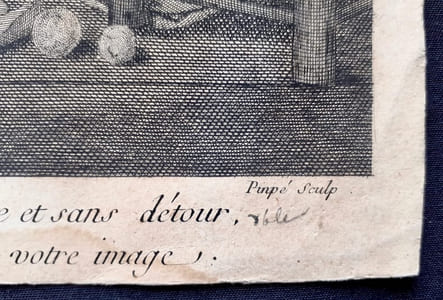 Pinpé Sculp.
e et sans détour,
votre image.